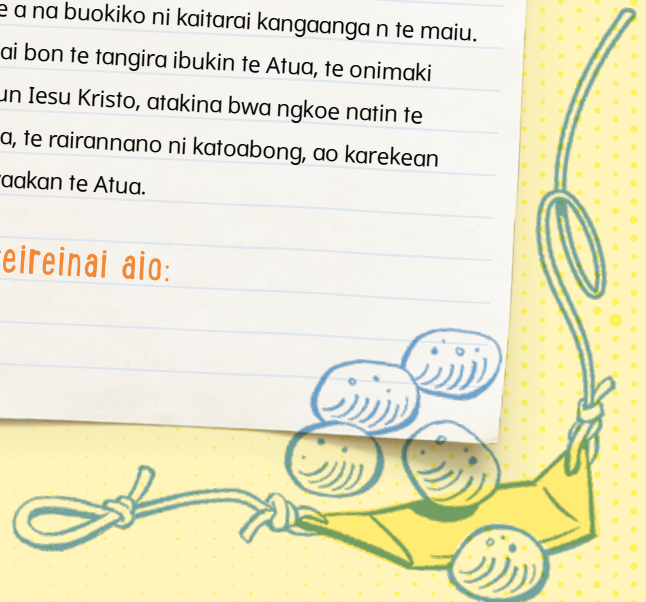 e a na buokiko ni kaitarai kangaanga n te maiu.
ai bon te tangira ibukin te Atua, te onimaki
un Iesu Kristo, atakina bwa ngkoe natin te
a, te rairannano ni katoabong, ao karekean
aakan te Atua.
eireinai aio: